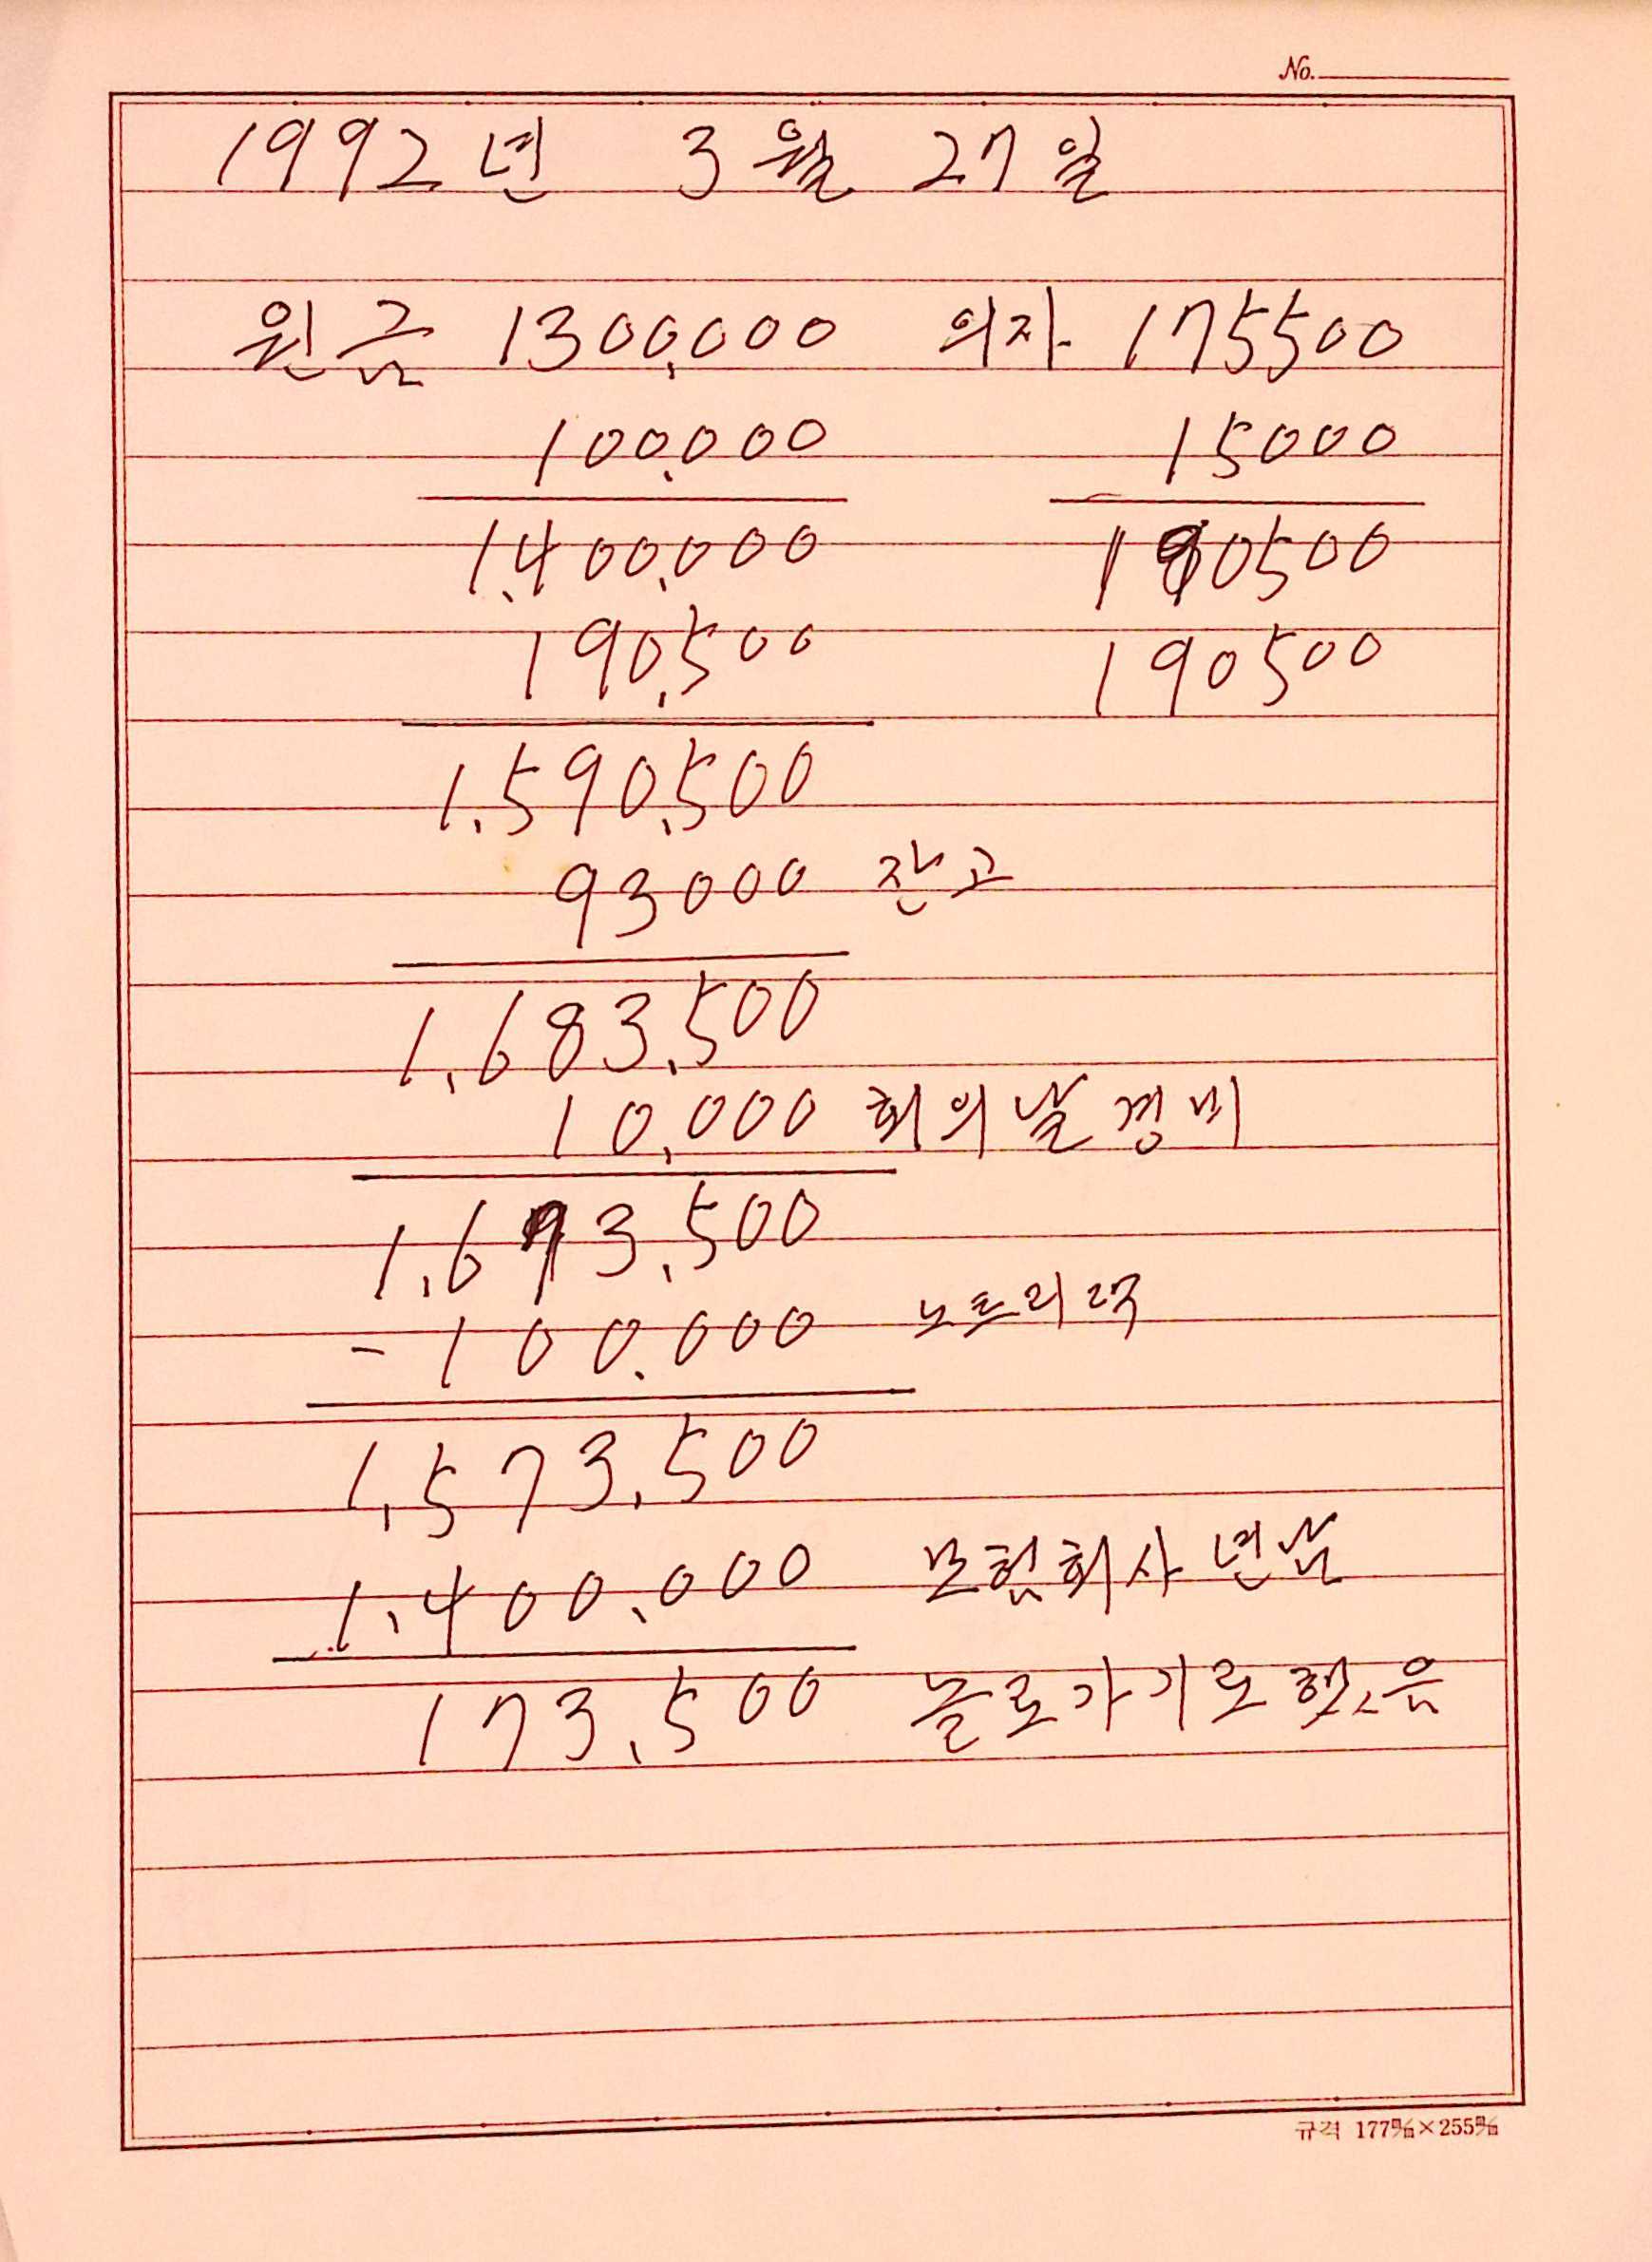 No.
1992년 3월 27일
원금 1300,000 의자 175500
100.000 15000
1.400.000 190500
190,500 190500
1.590,500
93000 잔고
1,683,500
10,000 회의날경비
1,693,500
-100.000
1,573,500
1.400.000 보험회사년납
173,500 놀로가기로했음
규격 177㎜×255㎜